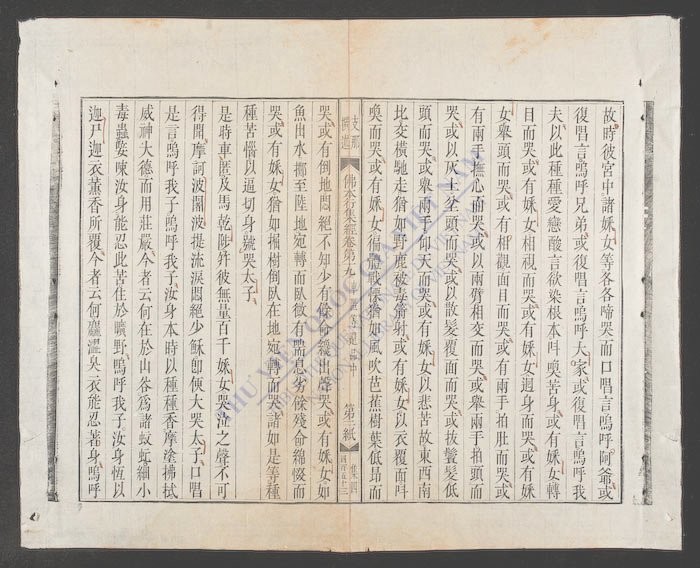 故時彼宮中諸婇女等各各啼哭而口唱言嗚呼阿爺或
復唱言嗚呼兄弟或復唱言嗚呼大家或復唱言嗚呼我
夫以此種種愛戀酸言欲染根本叫喚苦身或有婇女轉
目而哭或有婇女相視而哭或有婇女迴身而哭或有婇
女舉頭而哭或有相觀面目而哭或有兩手拍肚而哭或
有兩手撫心而哭或以兩臂相交而哭或舉兩手拍頭而
哭或以灰土坌頭而哭或以散髮覆面而哭或拔鬢髮低
頭而哭或舉兩手仰天而哭或有婇女以悲苦故東西南
北交橫馳走猶如野鹿被毒箭射或有婇女以衣覆面叫
喚而哭或有婇女徧體戰慄猶如風吹芭蕉樹葉低昂而
支那
撰述
佛本行集經卷第九
第三紙
哭或有倒地悶絕不知少有餘命纔出聲哭或有婇女如
魚出水擲至陸地宛轉而臥微有喘息劣餘殘命綿惙而
哭或有婇女猶如掘樹倒臥在地宛轉而哭諸如是等種
種苦惱以逼切身號哭太子
是時車匿及馬乾陟并彼無量百千婇女哭泣之聲不可
得聞摩訶波闍波提流淚悶絕少穌卽便大哭太子口唱
是言嗚呼我子嗚呼我子汝身本時以種種香摩塗拂拭
威神大德而用莊嚴今者云何在於山谷爲諸蚊虻細小
毒蟲娶唼汝身能忍此苦住於曠野嗚呼我子汝身恆以
迦尸迦衣薰香所覆今者云何麤澀臭衣能忍著身嗚呼
THƯ VIỆN QUỐC GIA VIỆT NAM